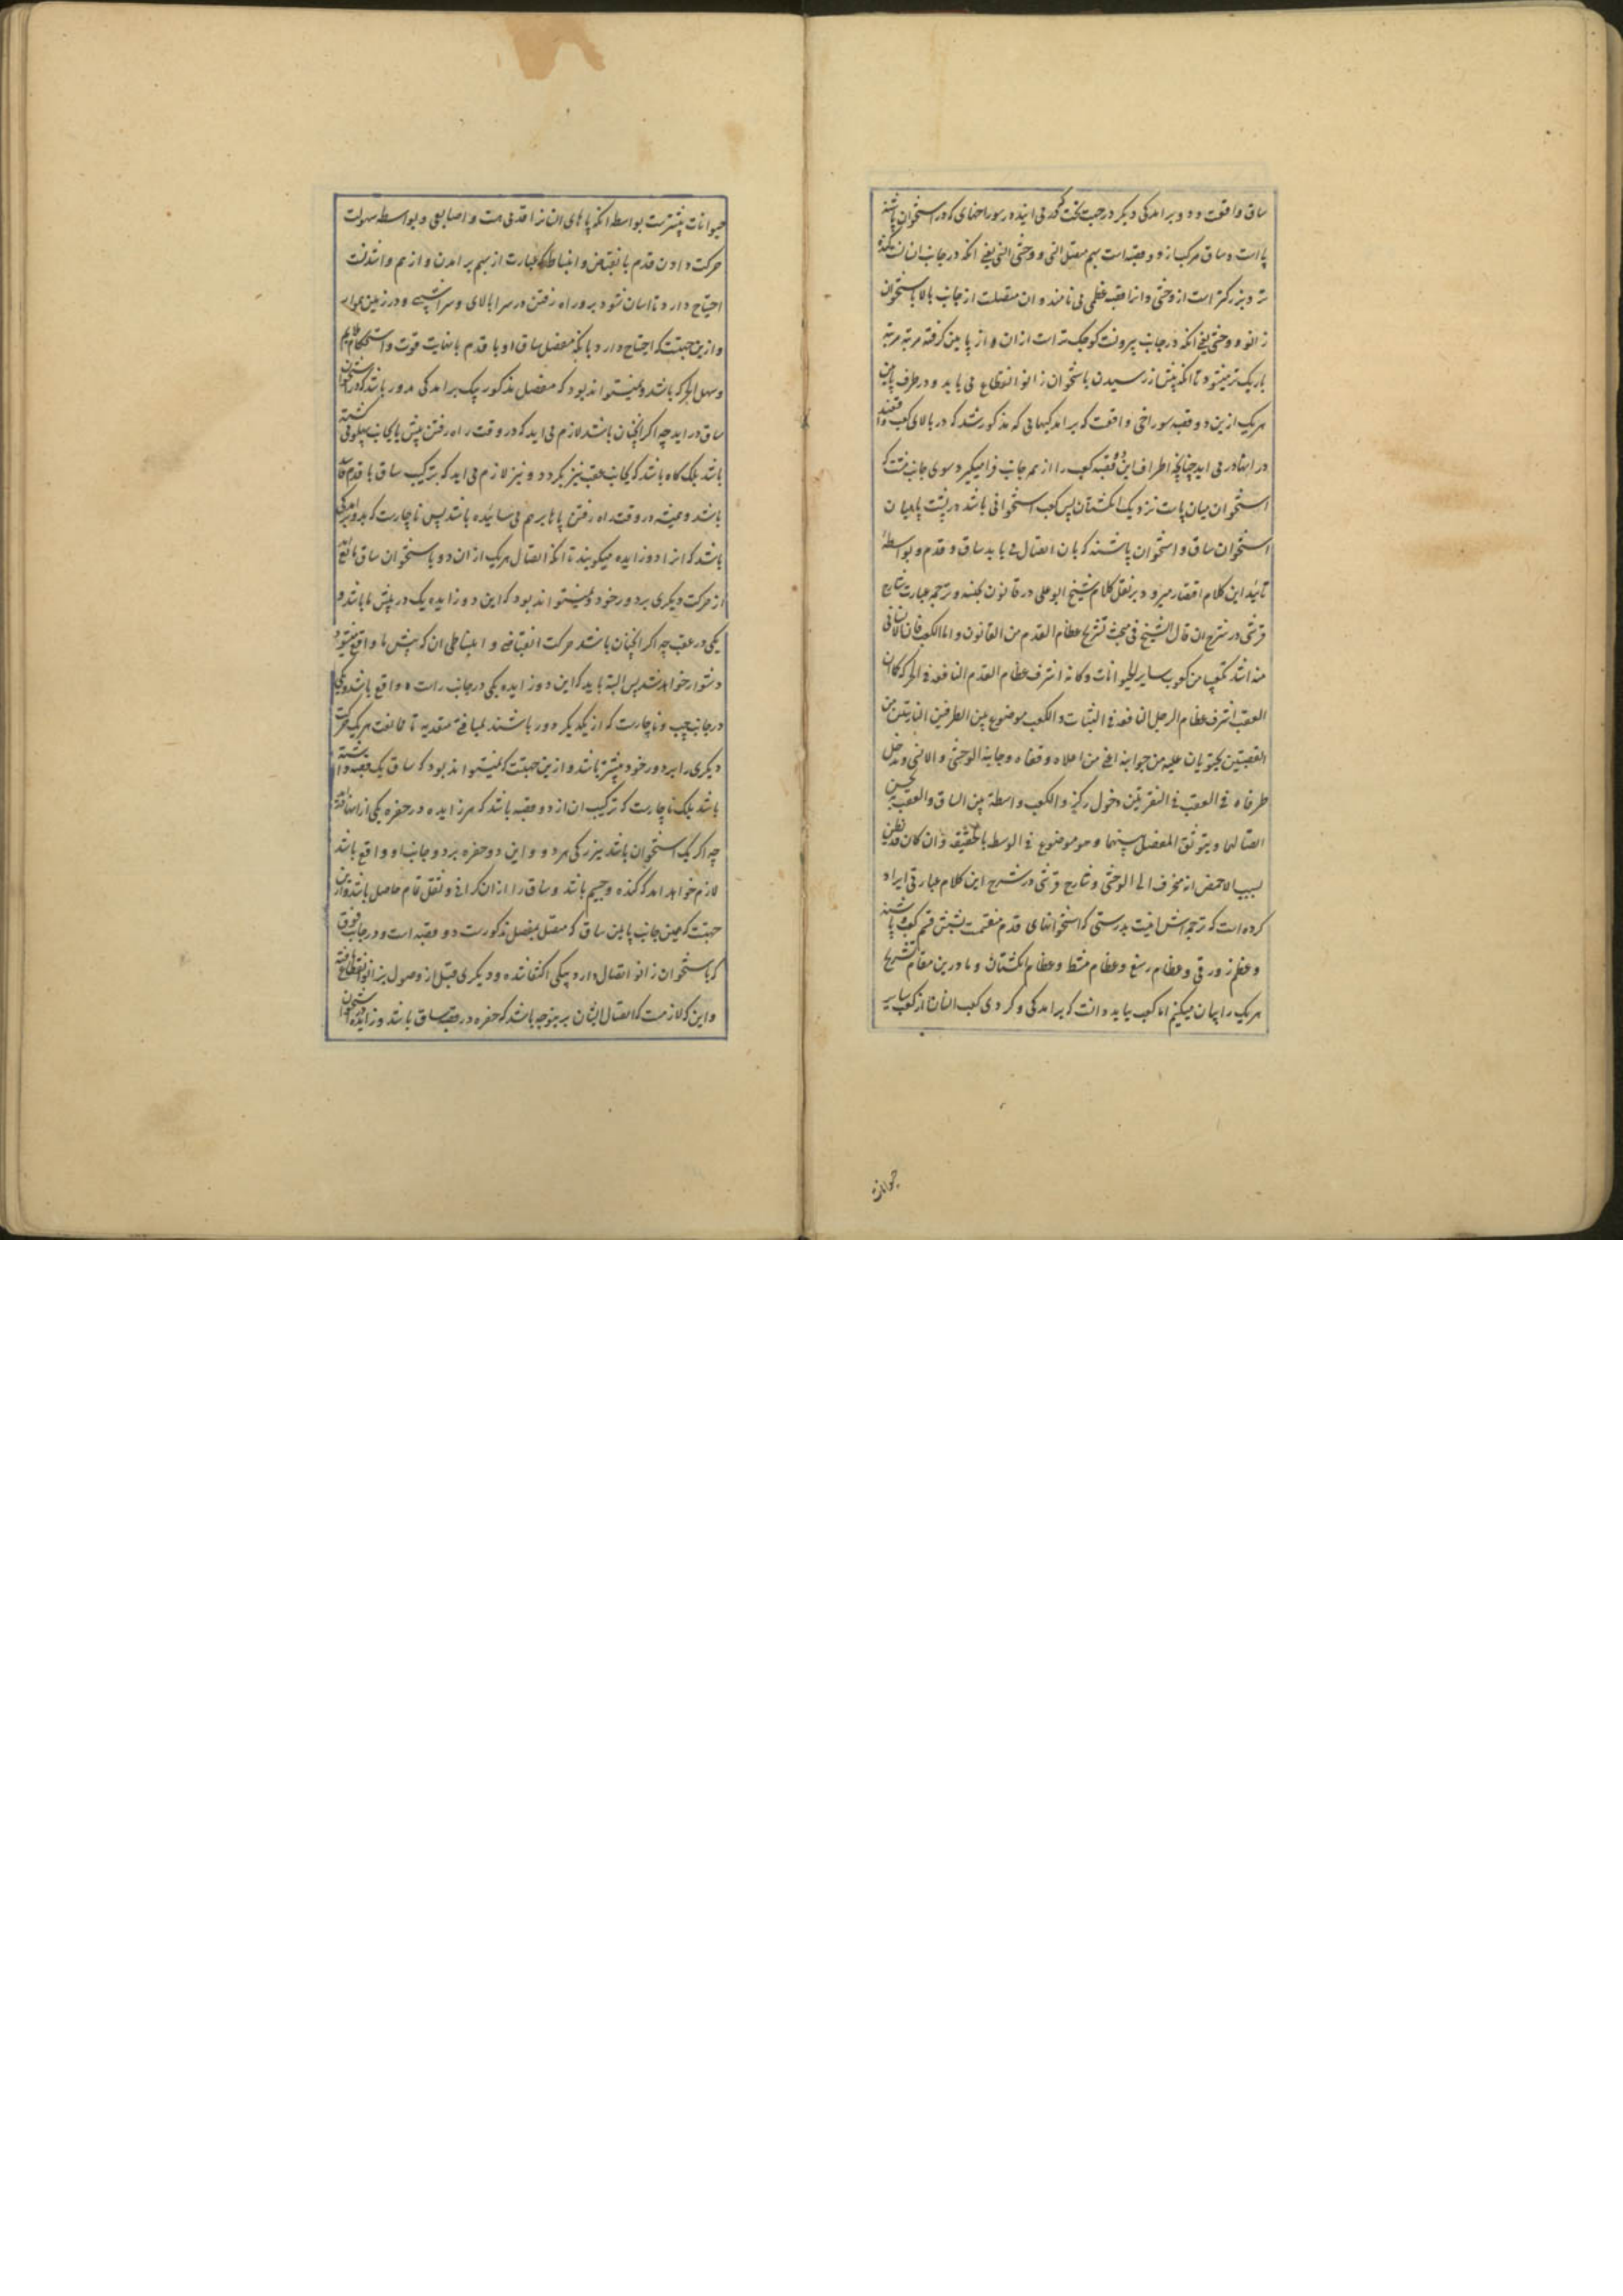 ساق واقعست و دو برامدکی دیکر در جهت تحت کعب در می ایند در سوراخهای که در استخوان پاشنه
پا است و ساق مرکب از دو قصبه است بهم متصل انسی و وحشی انسی یعنی آنکه در جانب انسانست کنده
تر و بزرکتر است از وحشی و انرا قصبه عظمی می نامند و ان متصلست از جانب بالا باستخوان
زانو و وحشی یعنی آنکه در جانب بیرونست کوچک تر است از ان و از پایین کرفته مرتبه مرتبه
باریک تر میشود تا آنکه پیش از رسیدن باستخوان زانو انقطاع می یابد و در طرف پایین
هریک ازین دو قصبه سوراخی واقعست که برامدکیهایی که مذکور شد که در بالای کعب واقعند
در انها در می اید چنانچه اطراف این دو قصبه کعب را از همه جانب فرا میکیرد سوی جانب تحت که
استخوان میان پاست نزدیک انکشتان پس کعب استخوانی باشد در پشت پا میان
استخوان ساق و استخوان پاشنه که بان اتصال می یابد ساق و قدم و بواسطه
تائید این کلام اقتصار میرود بر نقل کلام شیخ ابو علی در قانون بکنند و ترجمه عبارت شارح
قرشی در شرح ان قال الشیخ فی مبحث تشریح عظام القدم من القانون و اما الکعب فان الانسانی
منه اشد تکعیبا من کعوب سایر الحیوانات و کانه اشرف عظام القدم النافعة فی الحرکة کما ان
العقب اشرف عظام الرجل النافعة فی الثبات و الکعب موضوع بین الطرفین الناتیین من
القصبتین یحتویان علیه من جوانبه اعنی من اعلاه و قفاه و جانبیه الوحشی و الانسی و یدخل
طرفاه فی العقب فی النقرتین دخول رکز و الکعب واسطة بین الساق و العقب به یحسن
اتصالهما و یتوثق المفصل بینهما و هو موضوع فی الوسط بالحقیقة و ان کان قد یظن
بسبب الاخمص انه منحرف الی الوحشی و شارح قرشی در شرح این کلام عبارتی ایراد
کرده است که ترجمه اش اینست بدرستی که استخوانهای قدم منقسمست بشش قسم کعب و پاشنه
و عظم زورقی و عظام رسغ و عظام مشط و عظام انکشتان و ما درین مقام تشریح
هریک را بیان میکنیم اما کعب بباید دانست که برامدکی و کردی کعب انسان از کعب سایر
حیوانات
حیوانات بیشترست بواسطه آنکه پاهای انسان را قدمی هست و اصابعی و بواسطه سهولت
حرکت دادن قدم بانقباض و انبساط که عبارت از بهم بر امدن و از هم واشدنست
احتیاج دارد تا آسان شود برو راه رفتن در سرابالای و سراشیبی و در زمین هموار
و ازین جهتست که احتیاج دارد بآنکه مفصل ساق او با قدم با نهایت قوت و استحکام ملایم
و سهل الحرکه باشد و نمیتواند بود که مفصل مذکور بیک برامدکی مدور باشد که در استخوان
ساق در اید چه اکر انچنان باشد لازم می اید که در وقت راه رفتن پیش پا بجانب پهلو می کشته
باشد بلکه کاه باشد که بجانب عقب نیز بکردد و نیز لازم می اید که ترکیب ساق با قدم
باشد و همیشه در وقت راه رفتن پاها بر هم می سائیده باشد پس ناچارست که بدو برامدکی
باشد که انرا دو زایده میکویند تا آنکه اتصال هریک از ان دو باستخوان ساق مانع
از حرکت دیکری بر دور خود و نمیتواند بود که این دو زایده یک در پیش پا باشد و
یکی در عقب چه اکر انچنان باشد حرکت انقباضی و انبساطی ان که پیش پا واقع میشود
دشوار خواهد شد پس البته باید که این دو زایده یکی در جانب راست واقع باشد و یکی
در جانب چپ و ناچارست که از یکدیکر دور باشند بمسافتی معتدبه تا ممانعت هریک حرکت
دیکری را بر دور خود بیشتر باشد و ازین جهتست که نمیتواند بود که ساق یک قصبه داشته
باشد بلکه ناچارست که ترکیب ان از دو قصبه باشد که هر زایده در حفره یکی از انها
چه اکر یک استخوان باشد ببزرکی هر دو و این دو حفره بر دو جانب او واقع باشد
لازم خواهد امد که کنده و جسیم باشد و ساق را از ان کرانی و ثقل تمام حاصل باشد و ازین
جهتست که همین جانب پایین ساق که متصل بمفصل مذکورست دو قصبه است و در جانب فوق
که باستخوان زانو اتصال دارد بیکی اکتفا شده و دیکری قبل از وصول بزانو انقطاع یافته
و این که لازمست که اتصال ایشان برینوجه باشد که حفره در قصبه ساق باشد و زایده در استخوان